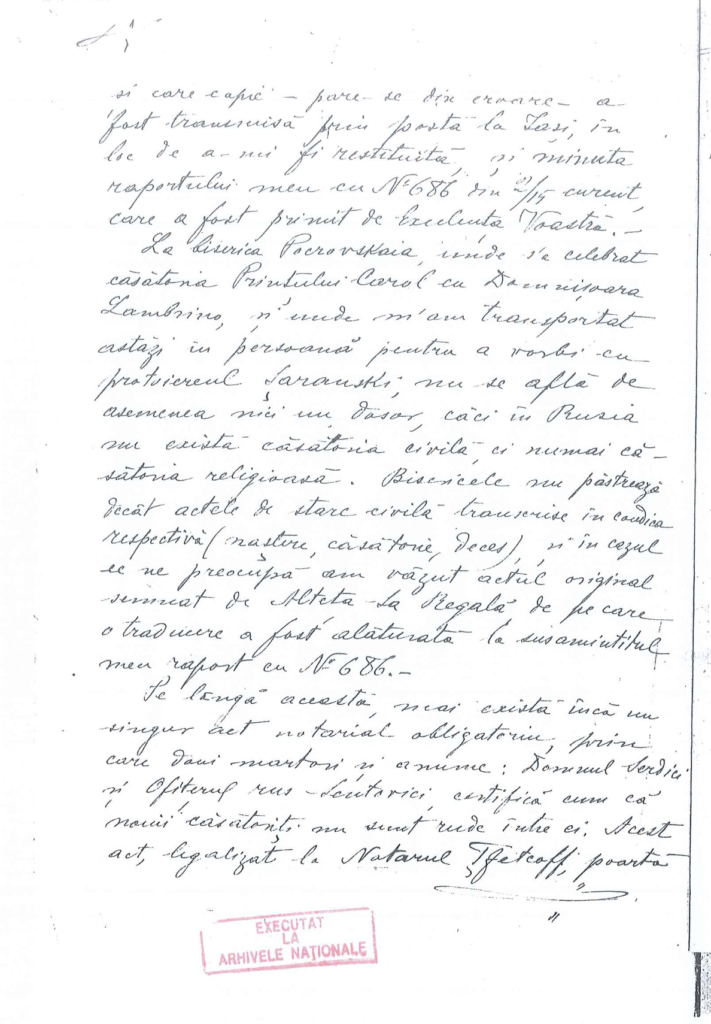 și care copie – pare-se din eroare – a
fost transmisă prin postă la Iași, în
loc de a-mi fi restituită, și minuta
raportului meu cu Nº 686 din 2/15 curent,
care a fost primit de Excelența Voastră. –
La biserica Pocrovskaia, unde s'a celebrat
căsătoria Prințului Carol cu Domnișoara
Lambrino, și unde m'am transportat
astăzi în persoană pentru a vorbi cu
protoiereul Șaranski, nu se află de
asemenea nici un dosar, căci în Rusia
nu există căsătoria civilă, ci numai că-
sătoria religioasă. Bisericele nu păstrează
decât actele de stare civilă transcrise în condica
respectivă (naștere, căsătorie, deces), și în cazul
ce ne preocupă am văzut actul original
semnat de Alteța Sa Regală de pe care
o traducere a fost alăturată la susamintitul
meu raport cu Nº 686. –
Pe lângă aceasta, mai există încă un
singur act notarial obligatoriu, prin
care doui martori și anume: Domnul Serdici
și Ofițerul rus Sentovici, certifică cum că
nouii căsătoriți nu sunt rude între ei. Acest
act, legalizat la Notarul poartă
"
EXECUTAT
LA
ARHIVELE NAȚIONALE